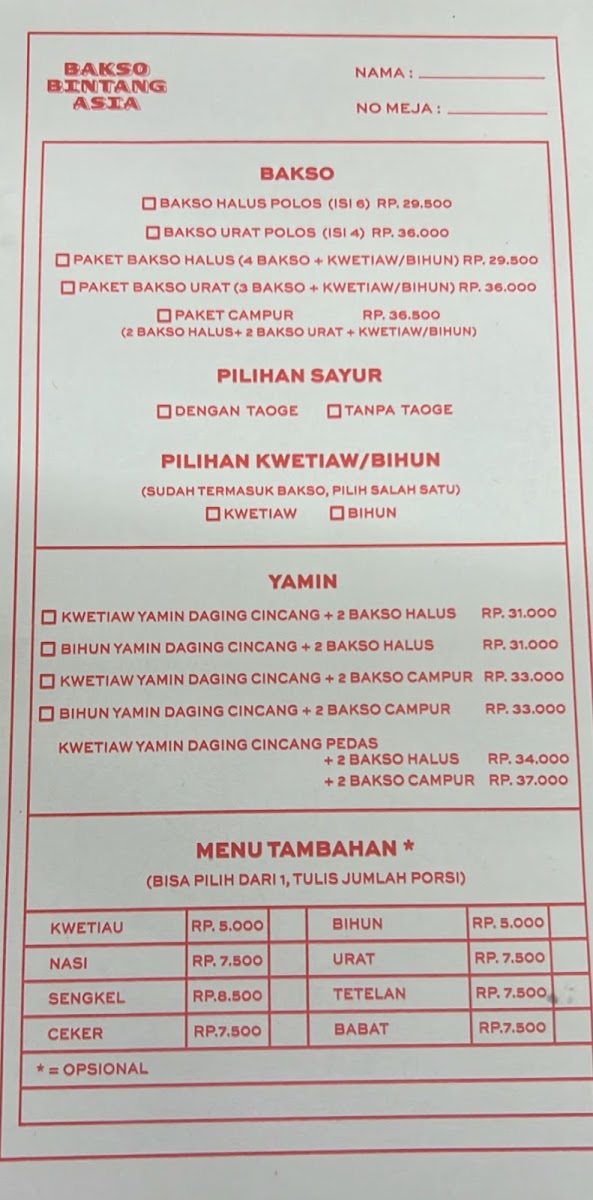 BAKSO
BINTANG
ASIA
NAMA :
NO MEJA :
BAKSO
BAKSO HALUS POLOS (ISI 6) RP. 29.500
BAKSO URAT POLOS (ISI 4) RP. 36.000
PAKET BAKSO HALUS (4 BAKSO + KWETIAW/BIHUN) RP. 29.500
PAKET BAKSO URAT (3 BAKSO + KWETIAW/BIHUN) RP. 36.000
PAKET CAMPUR RP. 36.500
(2 BAKSO HALUS+ 2 BAKSO URAT + KWETIAW/BIHUN)
PILIHAN SAYUR
DENGAN TAOGE TANPA TAOGE
PILIHAN KWETIAW/BIHUN
(SUDAH TERMASUK BAKSO, PILIH SALAH SATU)
KWETIAW BIHUN
YAMIN
KWETIAW YAMIN DAGING CINCANG + 2 BAKSO HALUS RP. 31.000
BIHUN YAMIN DAGING CINCANG + 2 BAKSO HALUS RP. 31.000
KWETIAW YAMIN DAGING CINCANG + 2 BAKSO CAMPUR RP. 33.000
BIHUN YAMIN DAGING CINCANG + 2 BAKSO CAMPUR RP. 33.000
KWETIAW YAMIN DAGING CINCANG PEDAS
+ 2 BAKSO HALUS RP. 34.000
+ 2 BAKSO CAMPUR RP. 37.000
MENU TAMBAHAN *
(BISA PILIH DARI 1, TULIS JUMLAH PORSI)
KWETIAU RP. 5.000 BIHUN RP. 5.000
NASI RP. 7.500 URAT RP. 7.500
SENGKEL RP.8.500 TETELAN RP. 7.500
CEKER RP.7.500 BABAT RP.7.500
* = OPSIONAL